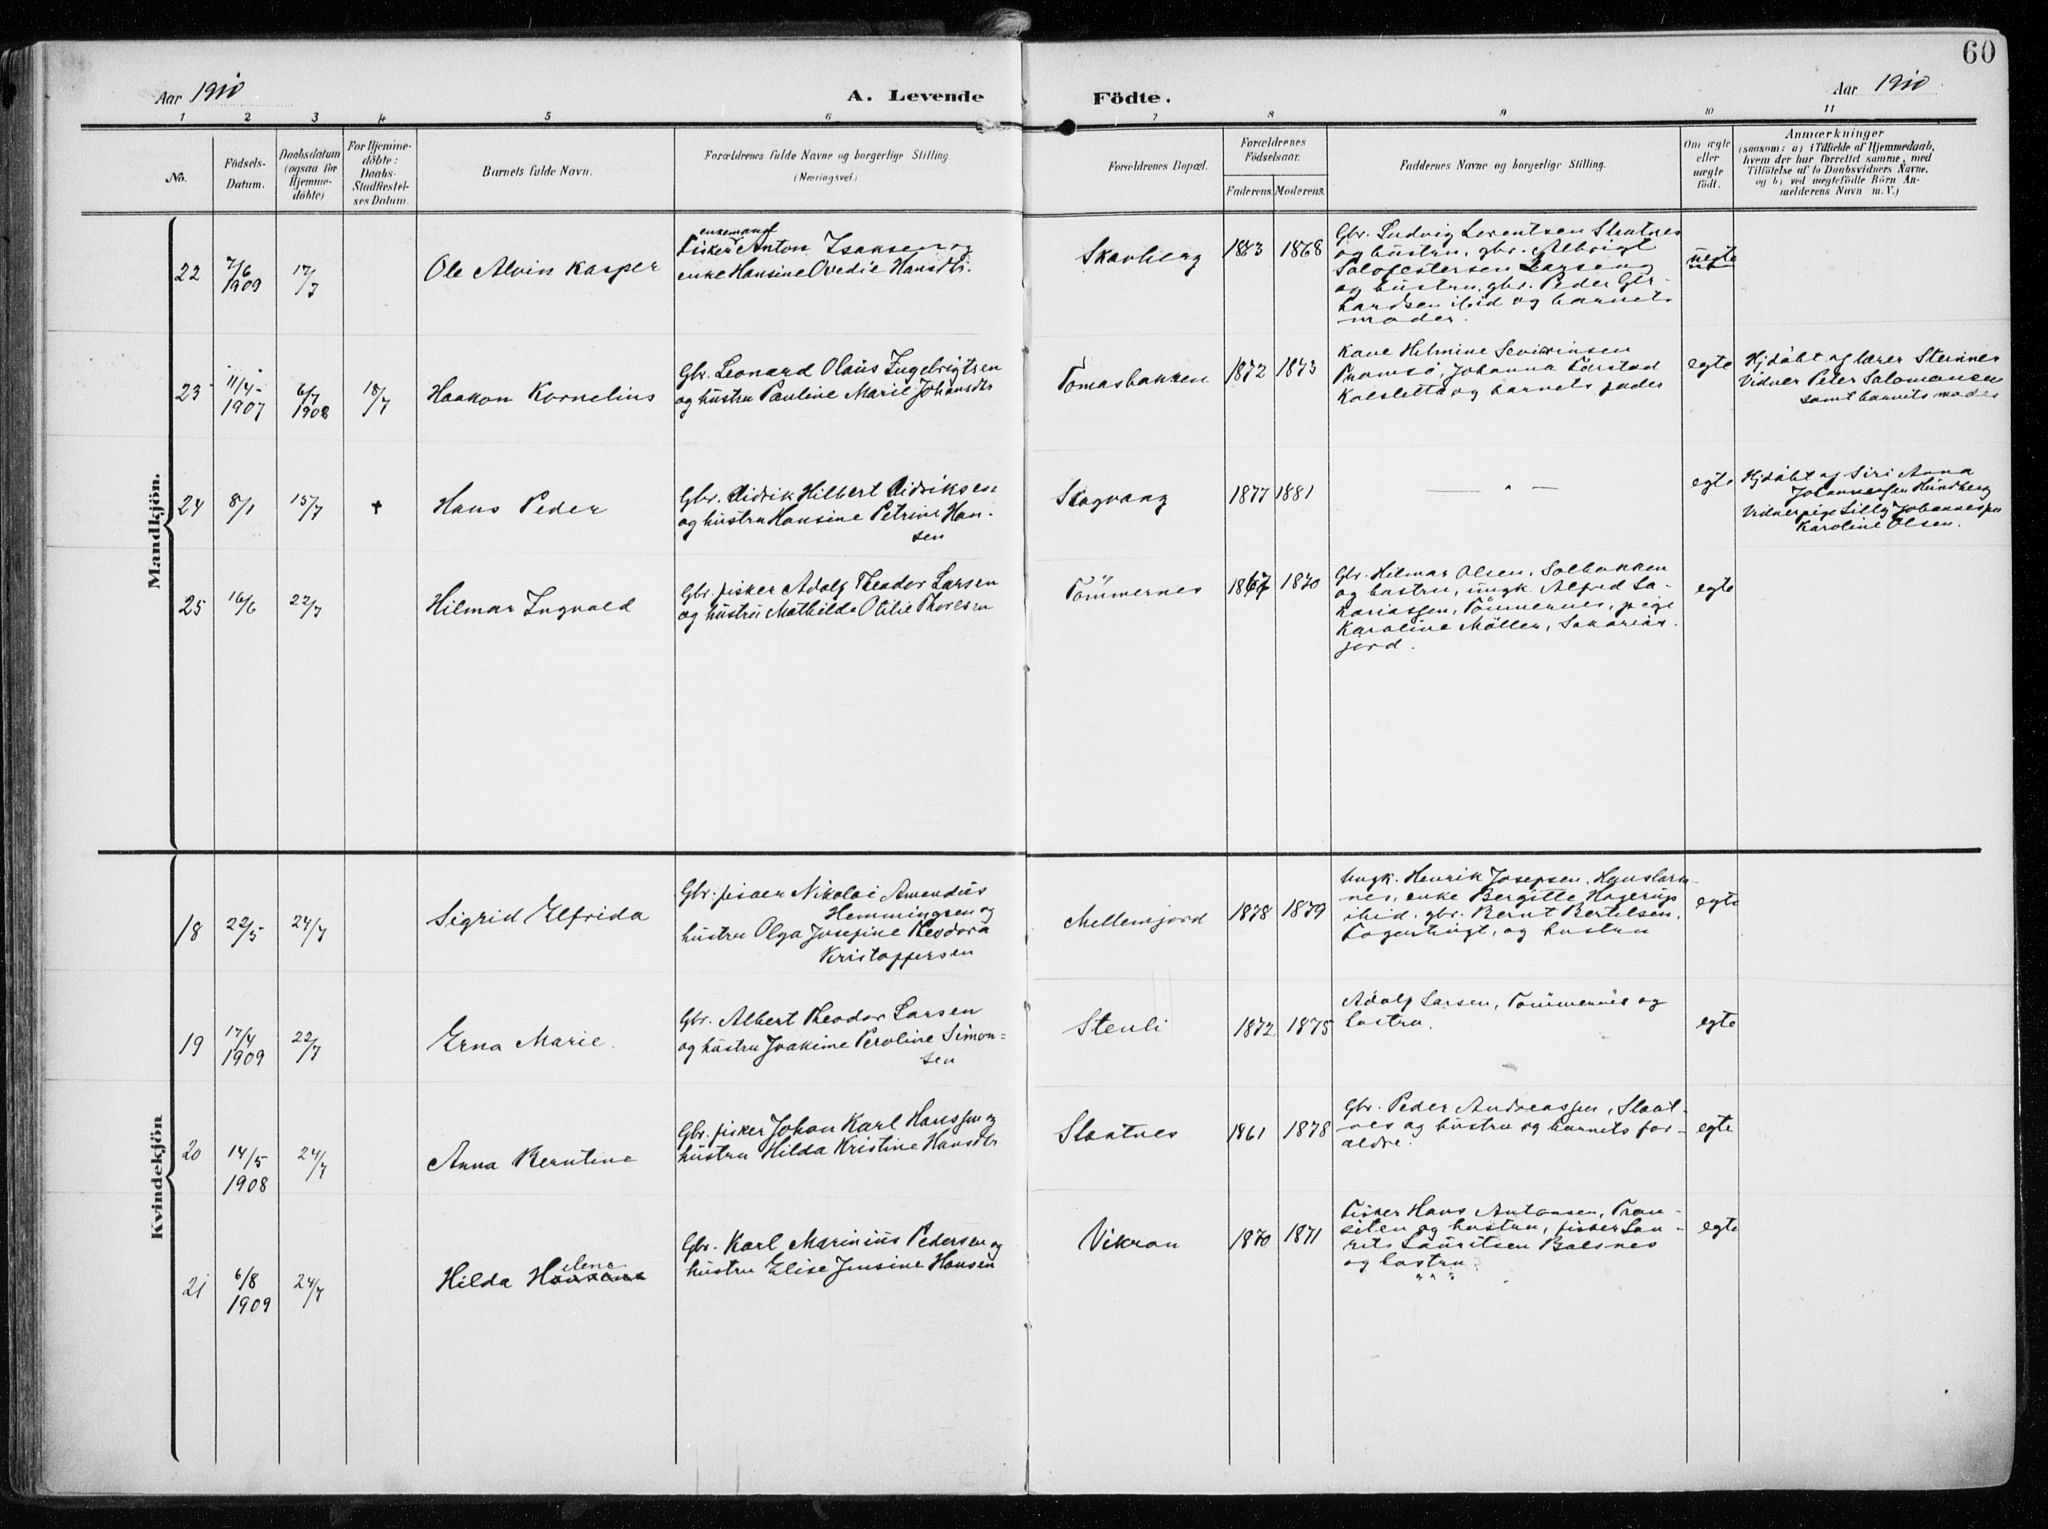 60
Aar 1910
A. Levende
Födte.
Aar 1910
1 2 3 4 5 6 7 8 9 10 11
No.
Födsels-
Datum.
Daabsdatum
(ogsaa for
Hjemme-
döbte)
For Hjemme-
döbte:
Daabs-
Stadfæstel-
ses Datum.
Barnets fulde Navn.
Forældrenes fulde Navne og borgerlige Stilling
(Næringsvei.)
Forældrenes Bopæl.
Forældrenes
Födselsaar.
Faderens. Moderens.
Faddernes Navne og borgerlige Stilling.
Om ægte
eller
uægte
født.
Anmærkninger
(saasom: a) i Tilfælde af Hjemmedaab,
hvem der har forrettet samme, med
Tilföielse af to Daabsvidners Navne.
og b) ved uægtefödte Börn An-
melderens Navn m. V.)
Mandkjön.
22
7/6
1909
17/7
Ole Alvin Kasper
enkemand
Fisker Anton Isaksen og
enke Hansine Ovedie Hansdtr.
Skavberg
1863 1868
Gbr. Ludvig Lorentsen Slatnes
og hustru, gbr. Albrigt
Larsen
og hustru, gbr. Peder
ibid og barnets
moder.
uegte
23
11/4
1907
6/7
1908
18/7
Haakon Kornelius
Gbr. Leonard Olaus Ingebrigtsen
og hustru Pauline Marie Johansdtr
Tomasbakken
1872 1873
Kone Helmine Severinsen
Tromsö, Johanna
Kalsletta og barnets fader
egte
Hjdöbt af lærer Steinnes
Vidner Peter Salomonsen
samt barnets moder
24
8/1
15/7
+
Hans Peder
Gbr. Didrik Hilbert Didriksen
og hustru Hansine Petrine Han-
sen
Skogvang
1877 1881
— " —
egte
Hjdöbt af Siri Anna
Johannessen Hundberg
Vidner pige Lilly Johannessen
Karoline Olsen.
25
16/6
22/7
Hilmar Ingvald
Gbr. fisker Adolf Theodor Larsen
og hustru Mathilde Otilie Thoresen
Tömmernes
1867 1870
Gbr. Hilmar Olsen, Solbakken
og hustru, ungk. Alfred Za-
kariassen, Tömmernes, pige
Karoline Möller, Sakarias-
jord.
egte
Kvindekjön
18
22/5
24/7
Sigrid Elfrida
Gbr. fisker Nikolai Amandus
Hemmingsen og
hustru Olga Josefine Theodora
Kristoffersen
Mellemjord
1878 1879
Ungk. Henrik Josefsen,
nes, enke Bergitte Hagerup
ibid. gbr. Bernt Bertelsen,
og hustru
egte
19
17/4
1909
22/7
Erna Marie.
Gbr. Albert Theodor Larsen
og hustru Joakime Peroline Simon-
sen
Stenli
1872 1875
Adolf Larsen, Tömmernes og
hustru.
egte
20
14/5
1908
24/7
Anna Berntine
Gbr. fisker Johan Karl Hanssen og
hustru Hilda Kristine Hansdtr
Slaatnes
1861 1878
Gbr. Peder Andreassen, Slaat-
nes og hustru og barnets for-
ældre.
egte
21
6/8
1909
24/7
Hilda Helena
Gbr. Karl Marinius Pedersen og
hustru Elise Jensine Hansen
Vikran
1870 1871
Fisker Hans Antonsen, Tran-
og hustru, fisker Lau-
rits Lauritsen Balsnes
og hustru.
egte